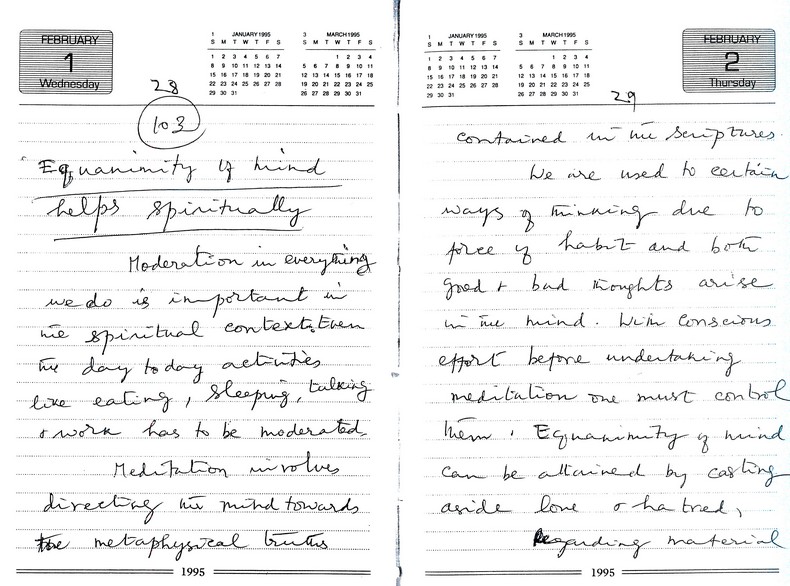 FEBRUARY
1
Wednesday
1 JANUARY 1995
S M T W T F S
1 2 3 4 5 6 7
8 9 10 11 12 13 14
15 16 17 18 19 20 21
22 23 24 25 26 27 28
29 30 31
3 MARCH 1995
S M T W T F S
1 2 3 4
5 6 7 8 9 10 11
12 13 14 15 16 17 18
19 20 21 22 23 24 25
26 27 28 29 30 31
28
103
Equanimity of mind
helps spiritually
Moderation in everything
we do is important in
the spiritual context. Even
the day today activities
like eating, sleeping, talking
& work has to be moderated.
Meditation involves
directing the mind towards
the metaphysical truths
1995
1 JANUARY 1995
S M T W T F S
1 2 3 4 5 6 7
8 9 10 11 12 13 14
15 16 17 18 19 20 21
22 23 24 25 26 27 28
29 30 31
3 MARCH 1995
S M T W T F S
1 2 3 4
5 6 7 8 9 10 11
12 13 14 15 16 17 18
19 20 21 22 23 24 25
26 27 28 29 30 31
FEBRUARY
2
Thursday
29
contained in the scriptures.
We are used to certain
ways of thinking due to
force of habit and both
good & bad thoughts arise
in the mind. With conscious
effort before undertaking
meditation one must control
them. Equanimity of mind
can be attained by casting
aside love & hatred,
Regarding material
1995